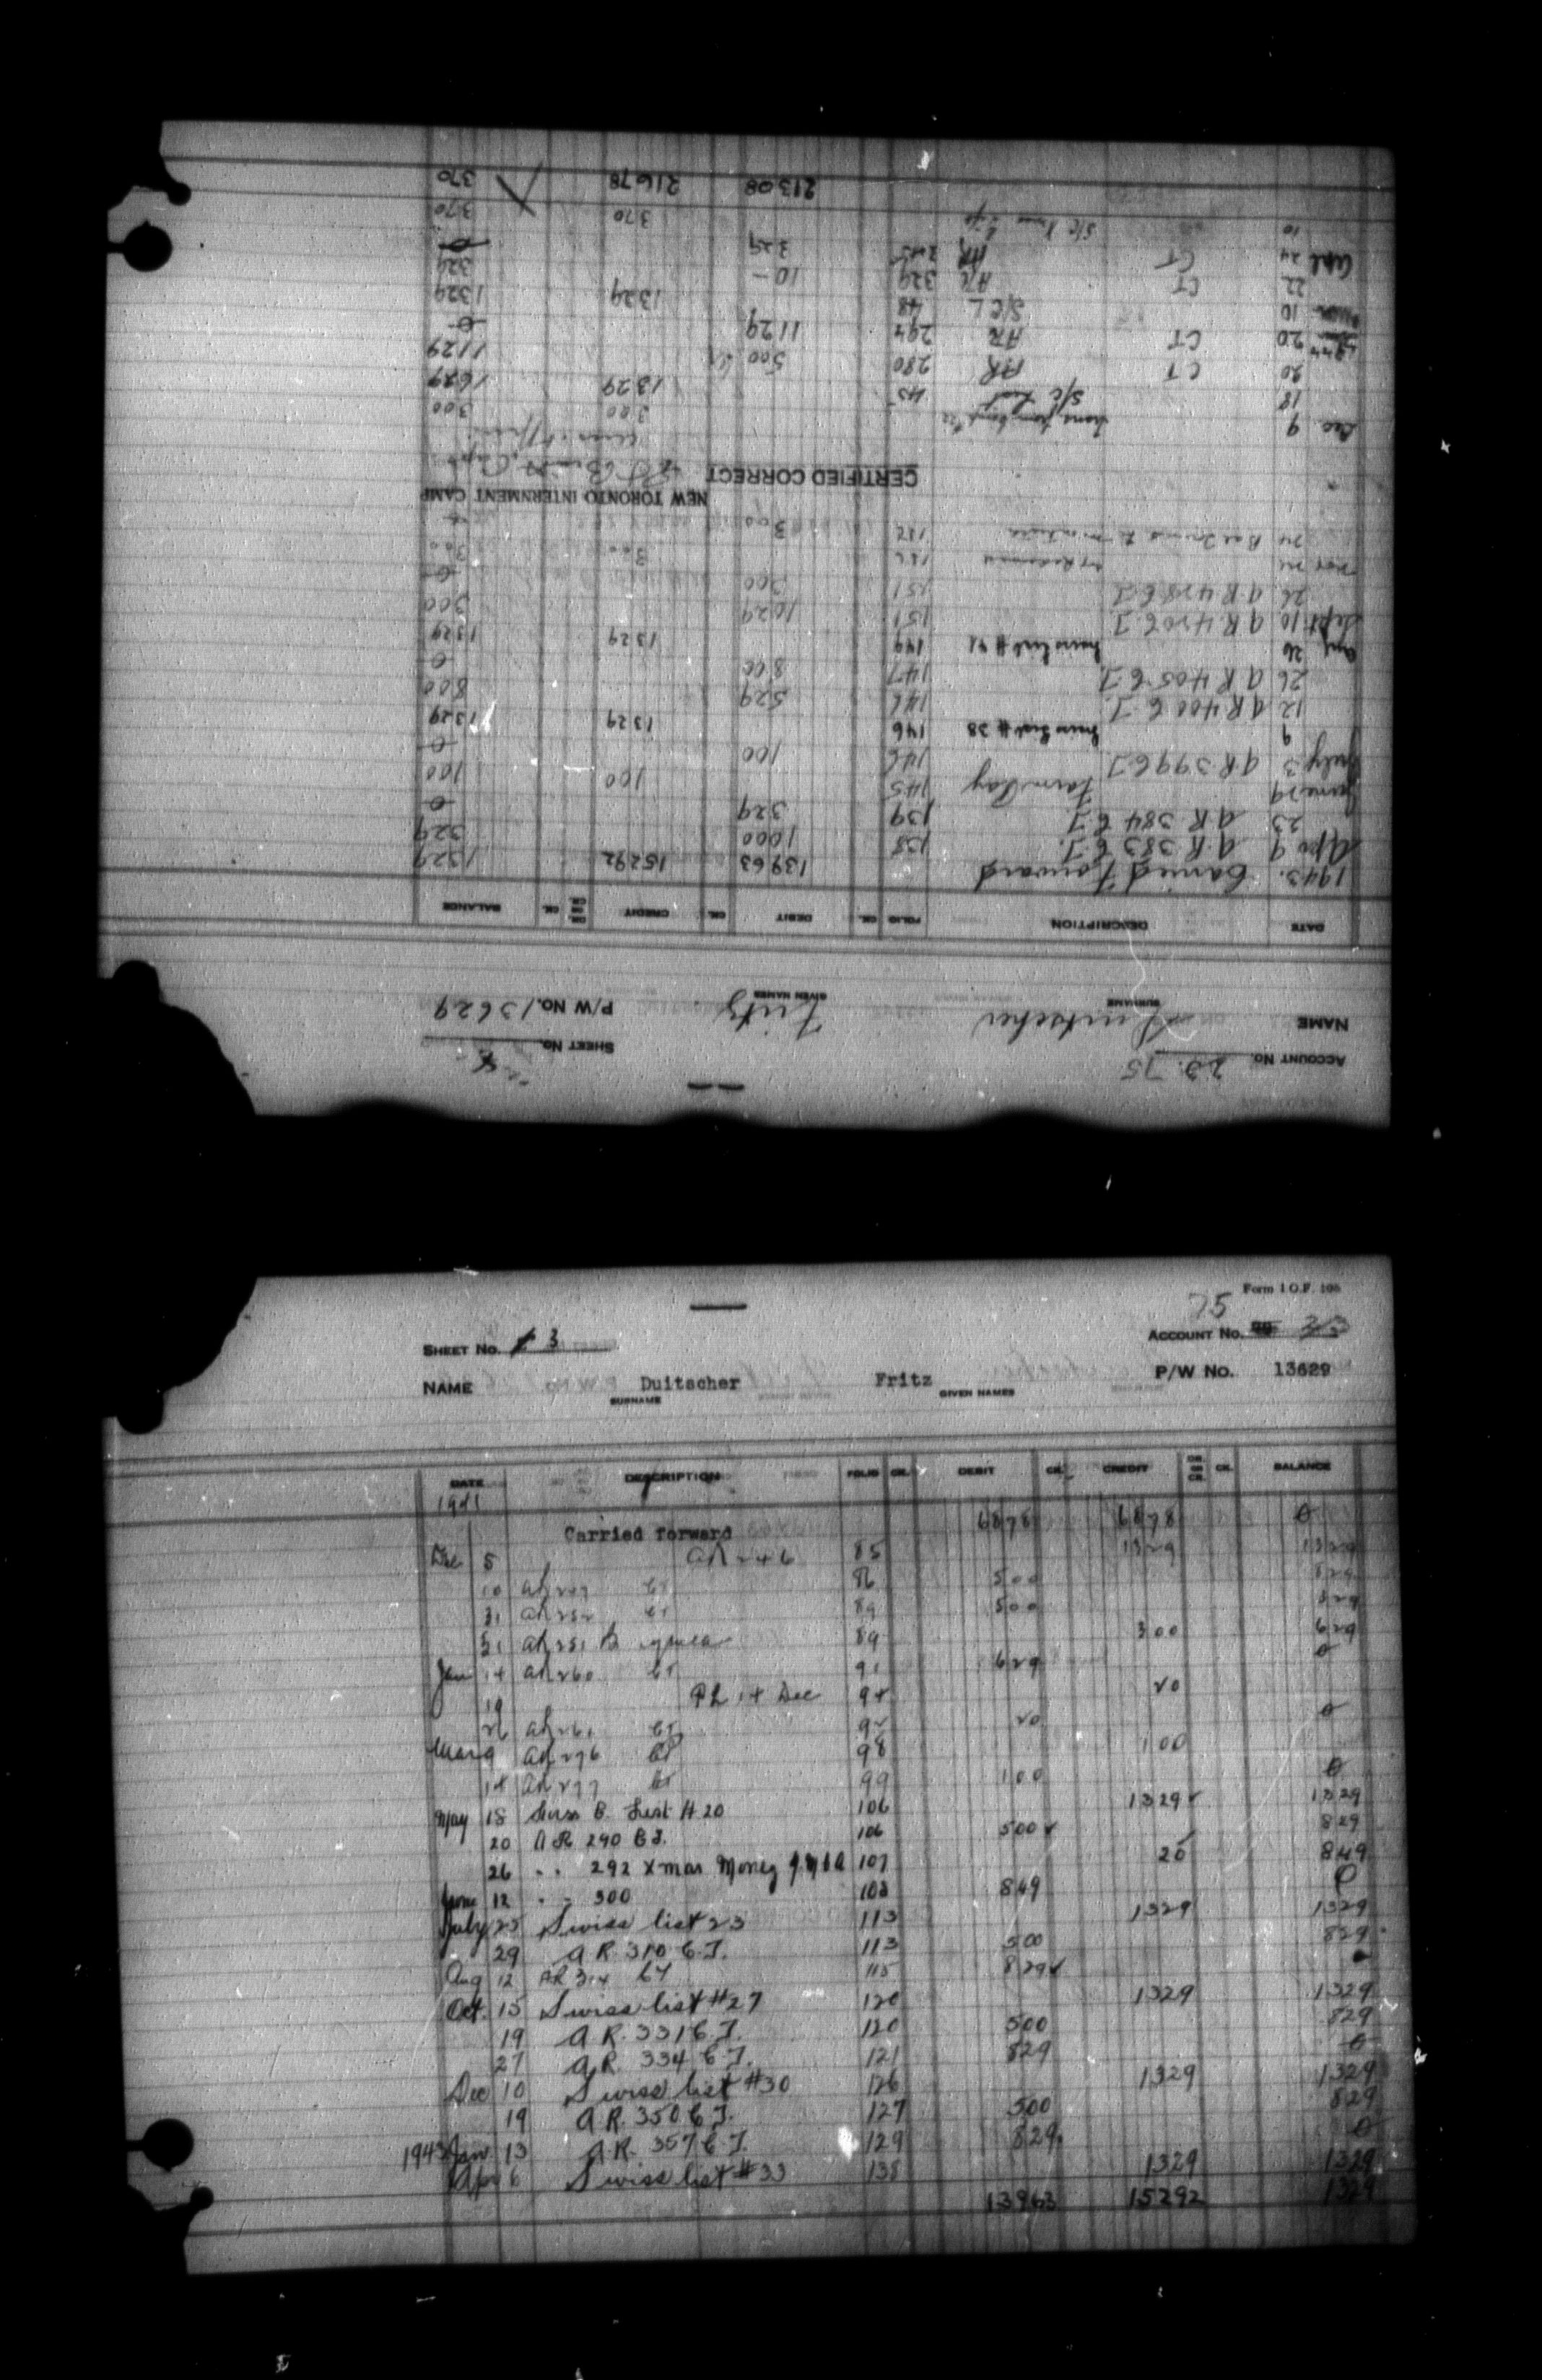 Form I.O.F. 106
75
SHEET No. 3 ACCOUNT No. 23
NAME Duitscher Fritz P/W No. 13629
SURNAME GIVEN NAMES
DATE DESCRIPTION FOLIO CR. DEBIT CR. CREDIT DR. OR CR. CR. BALANCE
1941
Carried forward 6878 6878 0
Dec 5 AR 246 85 1329 1329
10 AR 247 CT 86 500 829
31 AR 252 CT 89 500 329
31 AR 251 89 300 629
Jan 14 AR 260 CT 91 629 0
19 PL 14 Dec 94 20
26 AR 261 CT 92 20 0
Mar 9 AR 276 CT 98 100
14 AR 277 CT 99 100 0
May 18 Swiss B. List # 20 106 1329 1329
20 A R 290 C T. 106 500 829
26 " " 292 Xmas Money 107 20 849
June 12 " " 300 108 849 0
July 25 Swiss list 23 113 1329 1329
29 A R. 310 C.T. 113 500 829
Aug 12 AR 314 CT 115 829
Oct. 15 Swiss list #27 120 1329 1329
19 A R. 331 C T. 120 500 829
27 A R. 334 C T. 121 829 0
Dec 10 Swiss list #30 126 1329 1329
19 A.R. 350 C T. 127 500 829
1943 Jan 13 A R. 357 C T. 129 829 0
Apr 6 Swiss list #33 138 1329 1329
13963 15292 1329
ACCOUNT No. 23. 75 SHEET No. 4
NAME Duitscher Fritz P/W No. 13629
SURNAME GIVEN NAMES
DATE DESCRIPTION FOLIO CR. DEBIT CR. CREDIT DR. OR CR. CR. BALANCE
1943. Carried Forward 13963 15292 1329
Apr 9 A.R. 383 C T. 138 1000 329
23 A R 384 C T. 139 329 0
June 29 Farm Pay 145 100 100
July 3 A R 399 C T 146 100 0
9 Swiss List # 38 146 1329 1329
12 A R 400 C T. 146 529 800
26 A R 405 C T. 147 800 0
Aug 26 Swiss List # 41 149 1329 1329
Sept. 10 A R 420 C T 151 1029 300
26 A R 428 C T 151 300 0
Nov 24 152 300 300
24 Bal Forward to 152 300
NEW TORONTO INTERNMENT CAMP
CERTIFIED CORRECT
Dec 9 Trans from Camp #22 300 300
18 S/C List 45 1329 1629
20 CT AR 280 500 1129
1944 20 CT AR 294 1129 0
10 S/C L 48 1329 1329
22 CT AR 329 10 - 329
April 24 CT AR 329 0
10 370 370
21308 21678 370